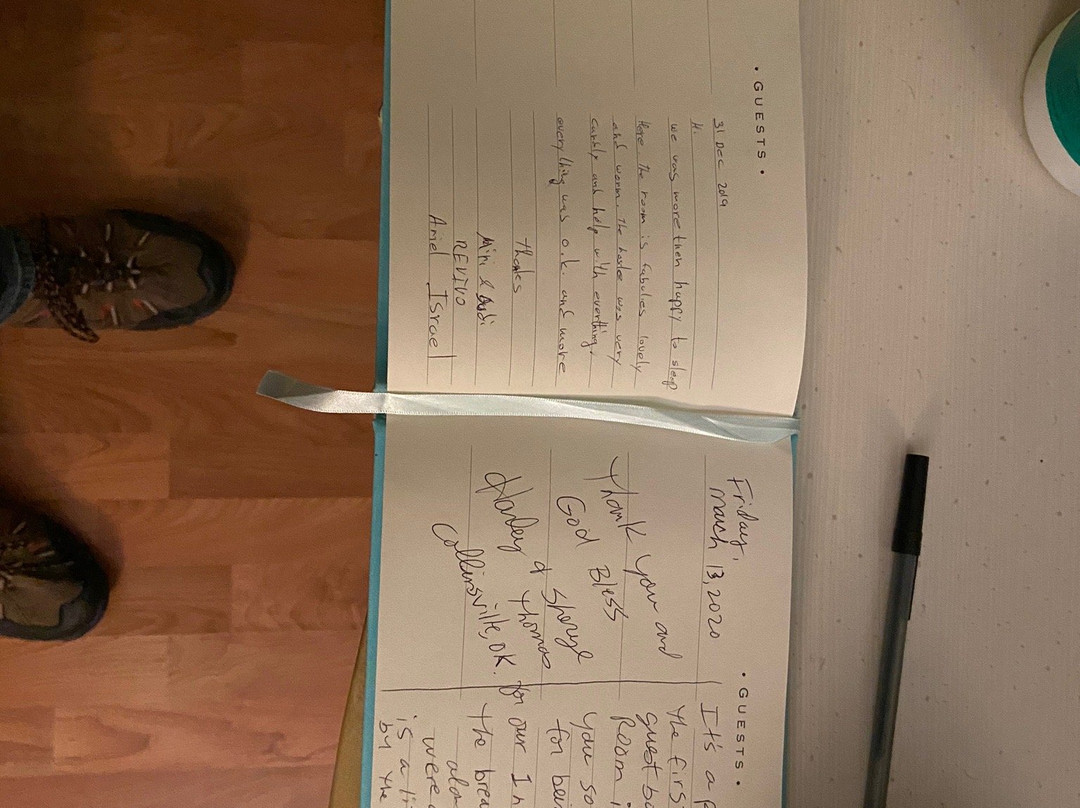 • GUESTS •
31 Dec 2019
Hi.
we was more then happy to sleep
Here the room is fabules lovely
and worm. the hostes was very
and help with everything.
everything was o.k. and more
thanks
Miri & Dudi
REVIVO
Ariel Israel
• GUESTS •
Friday,
March 13, 2020
Thank you and
God Bless
Harley &
Thomas
Collinsville, OK.
It's a
the firs
guest bo
Room
you so
for bei
for our In
the brea
alo
were
is a li
by the